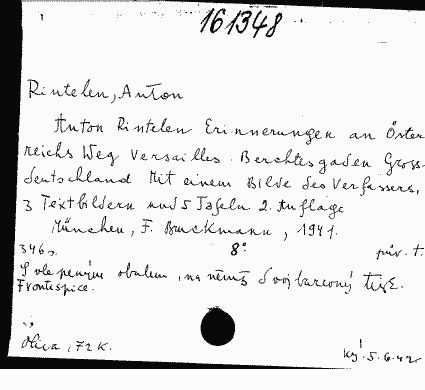 161348
Rintelen, Anton
Anton Rintelen Erinnerungen an Öster
reichs Weg Versailles. Berchtesgaden Gross-
deutschland Mit einem Bilde des Verfassers,
3 Textbildern und 5 Tafeln 2. Auflage
München, F. Bruckmann, 1941.
346 s. 8° pův. t.
S ole penným obalem, na němž dvojbarevný
Frontispice.
Oliva, 72 K. 5.6.42